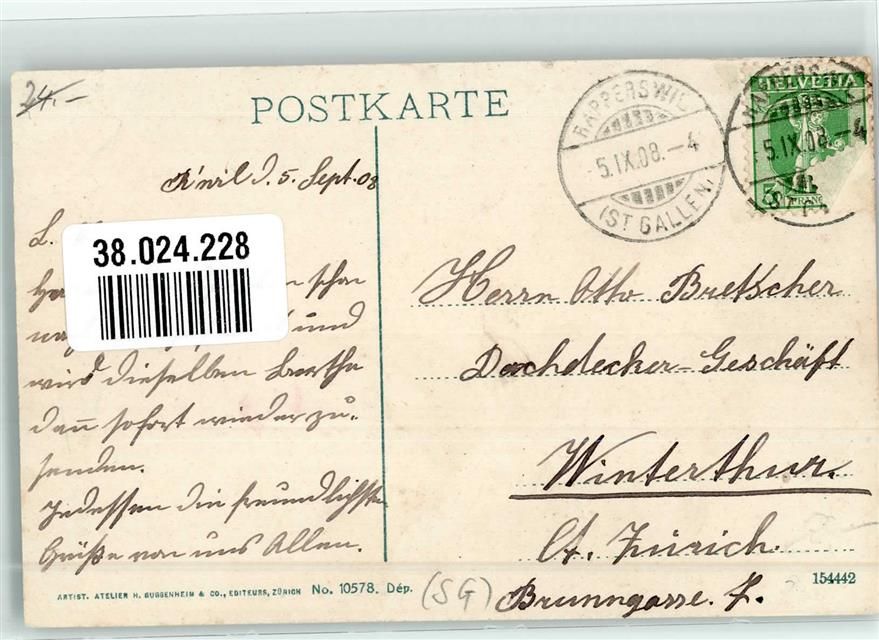 24.-
POSTKARTE
RAPPERSWIL
5.IX.08.-4
(ST GALLEN)
HELVETIA
5.IX.08.-4
5
FRANCO
R'wil d. 5. Sept. 08
L.
38.024.228
schon
und
wird dieselben Bertha
dann sofort wieder zu-
senden.
Indessen die freundlichste
Grüße von uns Allen.
Herrn Otto Bretscher
Dachdecker-Geschäft
Winterthur.
Ct. Zürich.
Brunngasse. 7.
154442
ARTIST. ATELIER H. GUGGENHEIM & CO., EDITEURS, ZÜRICH No. 10578. Dép.
(SG)